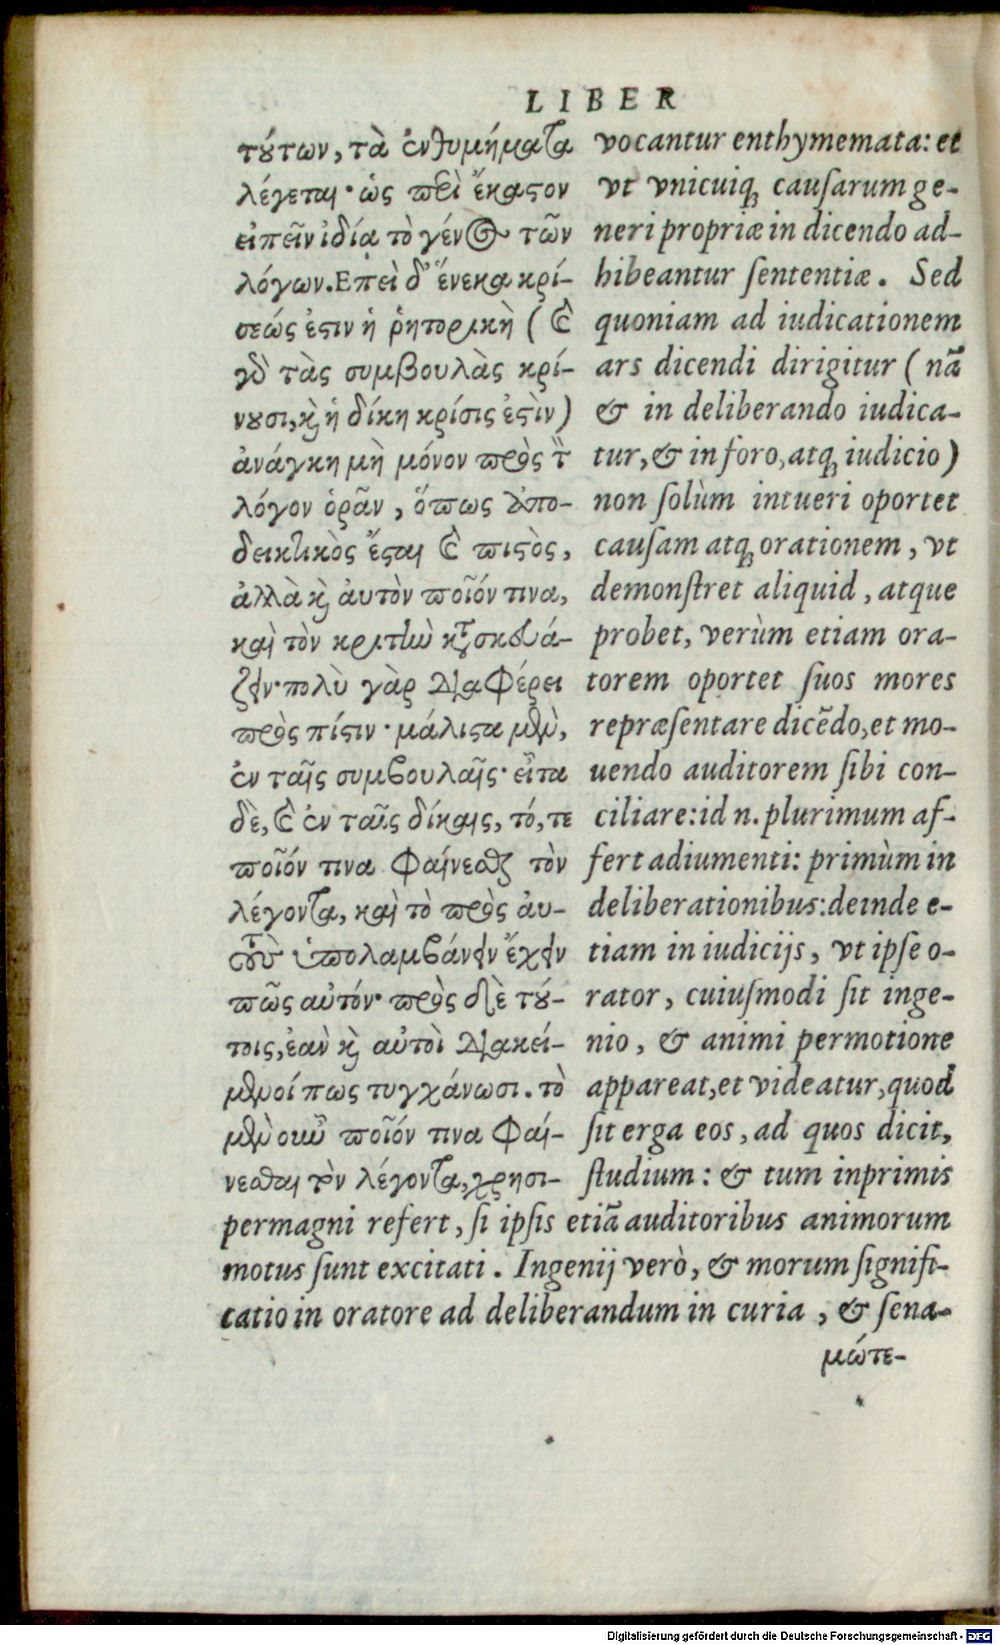 LIBER
τούτων, τὰ ἐνθυμήματα
λέγεται· ὡς περὶ ἕκαστον
εἰπεῖν ἰδίᾳ τὸ γένος τῶν
λόγων. Επεὶ δ' ἕνεκα κρί-
σεώς ἐστιν ἡ ῥητορικὴ (καὶ
γὸ τὰς συμβουλὰς κρί-
νουσι, καὶ ἡ δίκη κρίσις ἐστὶν)
ἀνάγκη μὴ μόνον πρὸς τὸν
λόγον ὁρᾶν, ὅπως ἀπο-
δεικτικὸς ἔσται καὶ πιστὸς,
ἀλλὰ καὶ ἀυτὸν ποῖόν τινα,
καὶ τὸν κριτὴν κατασκευά-
ζειν· πολὺ γὰρ διαφέρει
πρὸς πίστιν· μάλιστα μὲν,
ἐν ταῖς συμβουλαῖς· εἶτα
δὲ, καὶ ἐν ταῖς δίκαις, τό, τε
ποῖόν τινα φαίνεσθαι τὸν
λέγοντα, καὶ τὸ πρὸς ἀυ-
τοὺς ὑπολαμβάνειν ἔχειν
πῶς αὐτόν· πρὸς δὲ τού-
τοις, ἐὰν καὶ αὐτοὶ διακεί-
μενοί πως τυγχάνωσι. τὸ
μὲν οὖν ποῖόν τινα φαί-
νεσθαι τὸν λέγοντα, χρησι-
vocantur enthymemata: et
vt vnicuiq; causarum ge-
neri propriæ in dicendo ad-
hibeantur sententiæ. Sed
quoniam ad iudicationem
ars dicendi dirigitur (nã
& in deliberando iudica-
tur, & in foro, atq; iudicio)
non solùm intueri oportet
causam atq; orationem, vt
demonstret aliquid, atque
probet, verùm etiam ora-
torem oportet suos mores
repræsentare dicẽdo, et mo-
uendo auditorem sibi con-
ciliare: id n. plurimum af-
fert adiumenti: primùm in
deliberationibus: deinde e-
tiam in iudicijs, vt ipse o-
rator, cuiusmodi sit inge-
nio, & animi permotione
appareat, et videatur, quod
sit erga eos, ad quos dicit,
studium: & tum inprimis
permagni refert, si ipsis etiã auditoribus animorum
motus sunt excitati. Ingenij verò, & morum signifi-
catio in oratore ad deliberandum in curia, & sena-
μώτε-
Digitalisierung gefördert durch die Deutsche Forschungsgemeinschaft - DFG